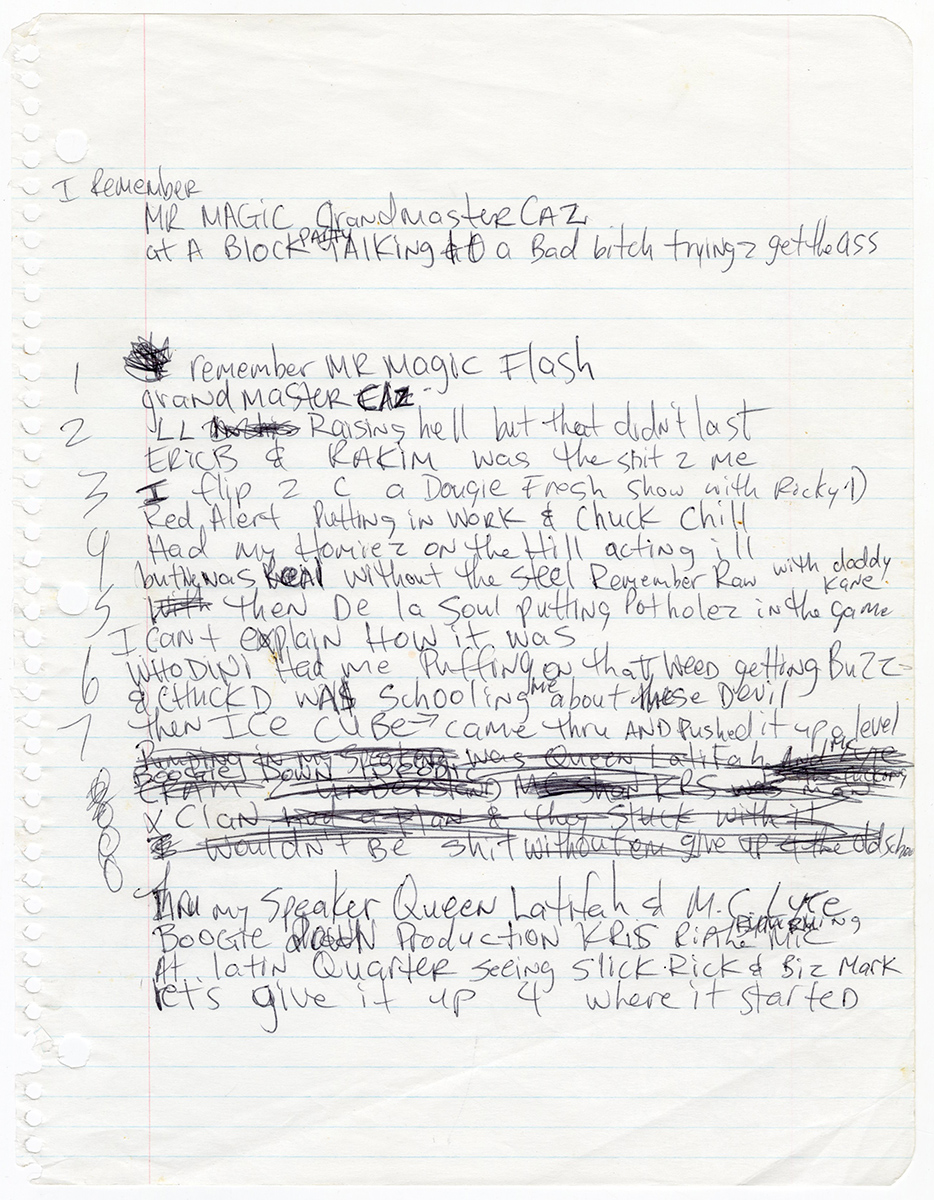 I Remember
MR MAGIC grandmaster CAZ
at A Block PARTY TALKING to a Bad bitch trying 2 get the ass
1 remember MR Magic Flash
grandmaster CAZ
2 LL Raising hell but that didn't last
ERIC B & RAKIM was the shit 2 me
3 I flip 2 C a Dougie Fresh show with Ricky D
Red Alert Putting in WORK & Chuck Chill
4 Had my Homiez on the Hill acting ill
without the steel Remember Raw with daddy Kane
5 then De la Soul putting Potholez in the game
I can't explain How it was
6 WHODINI Had me Puffing on that WEED getting BuZZ
& CHUCK D WAS Schooling me about these Devil
7 then ICE CUBE came thru AND Pushed it up a level
Pumping in my Speaker was Queen Latifah and MC Lyte
BOOGIE DOWN
CRAM UNDERSTAND KRS was
X Clan had a plan & they stuck with it
wouldn't BE shit without em give up 4 the old school
8
thru my Speaker Queen Latifah & M.C. Lyte
BOOGIE DOWN Production KRIS Mic
At latin Quarter seeing Slick Rick & Biz Mark
let's give it up 4 where it started